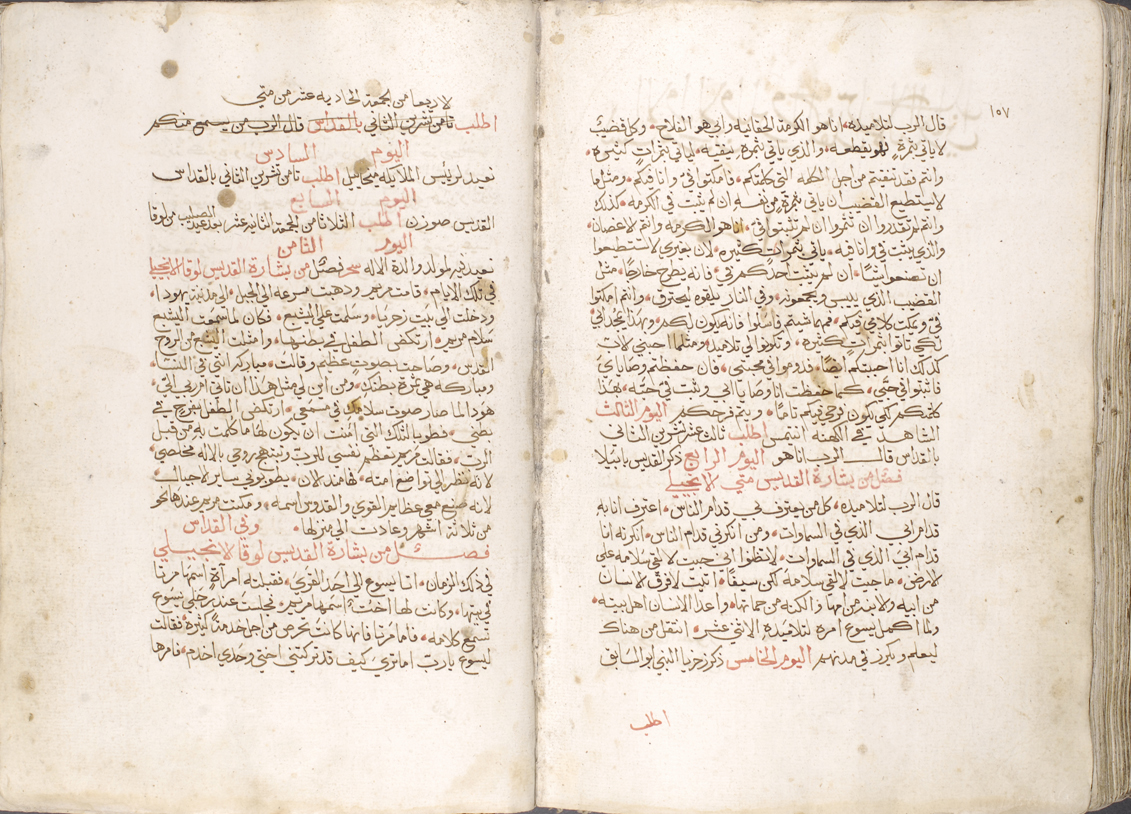 ١٥٧
قال الرب لتلاميذه انا هو الكرمة الحقانيه وابي هو الفلاح وكل قضيب
لا ياتي بثمرةٍ فهو يقطعه والذي ياتي بثمرةٍ ينقيه لياتي بثمراتٍ كثيره
وانتم فقد نقيتم من اجل الكلمه التي كلمتكم فامكثوا فيّ وانا فيكم ومثل ما
لا يستطيع القضيب ان ياتي بثمرةٍ من نفسه ان لم يثبت في الكرمه كذلك
وانتم لم تقدروا ان تثمروا ان لم تثبتوا فيّ انا هو الكرمه وانتم لاغصان
والذي يثبت فيّ وانا فيه ياتي بثمرات كثيره لان بغيري لا تستطيعوا
ان تصنعوا شيًا ان لم يثبت احدكم فيّ فانه يطرح خارجًا مثل
القضيب الذي ييبس ويجمعونه وفي النار يلقوه ليحترق وانتم امكثوا
فيّ ويمكث كلامي فيكم فمهما شيتم فاسلوا فانه يكون لكم وبهذا يمجد ابي
لكي تاتوا بثمراتٍ كثيره وتكونوا لي تلاميد ومثلما احبني لاب
كذلك انا احبكم ايضًا فدوموا في محبتي فان حفظتم وصاياي
فاثبتوا في حبي كما حفظت انا وصايا ابي وثبت في حبه هذا
كلمتكم لكي يكون فرحي فيكم تامًا ويتم فرحكم اليوم الثالث
الشاهد في الكهنه انتيمس اطلب ثالث عشر تشرين الثاني
بالقداس قال الرب انا هو اليوم الرابع ذكر القديس بابيلا
فصل من بشارة القديس متي لانجيلي
قال الرب لتلاميذه كل من يعترف بي قدام الناس اعترف انا به
قدام ابي الذي في السماوات ومن انكرني قدام الناس انكرته انا
قدام ابي الذي في السماوات لا تظنوا اني جيت لالقي سلامه علي
لارض ما جيت لالقي سلامة لكن سيفًا اتيت لافرق لانسان
من ابيه ولابنه من امها والكنه من حماتها واعدا الانسان اهل بيته
ولما اكمل يسوع امره لتلاميذه الاثني عشر انتقل من هناك
ليعلم ويكرز في مدنهم اليوم الخامس ذكر زخريا النبي ابو السابق
اطلب
لاربعا من الجمعه الحاديه عشر من متي
اطلب ثامن تشرين الثاني بالقداس قال الرب من يسمع منكم
اليوم السادس
نعيد لرئيس الملايكه ميخاييل اطلب ثامن تشرين الثاني بالقداس
اليوم السابع
القديس صوزن اطلب الثلاثا من الجمعه الثانيه عشر بعد عيد الصليب من لوقا
اليوم الثامن
نعيد فيه لمولد والدة الاله سحر فصل من بشارة القديس لوقا لانجيلي
في تلك الايام قامت مريم ودهبت مسرعه الي الجبل الي مدينة يهودا
ودخلت الي بيت زخريا وسلمت علي اليشبع فكان لما سمعت اليشبع
سلام مريم ارتكض الطفل في بطنها وامتلت اليشبع من الروح
القدس وصاحت بصوتٍ عظيم وقالت مباركه انتي في النسا
ومباركه هي ثمرة بطنك ومن اين لي مثل هذا ان تاتي ام ربي الي
هودا لما صار صوت سلامك في سمعي ارتكض الطفل بفرح في
بطني فطوبا لتلك التي امنت ان يكون لها ما كلمت به من قبل
الرب فقالت مريم تعظم نفسي للرب وتبتهج روحي بالاله مخلصي
لانه نظر الي تواضع امته فها منذ لان يطوبوني ساير لاجيال
لانه صنع معي عظايم القوي والقدوس اسمه ومكثت مريم عندها نحو
من ثلاثة اشهر وعادت الي منزلها وفي القداس
فصل من بشارة القديس لوقا لانجيلي
في ذلك الزمان اتا يسوع الي احد القري فقبلته امرآة اسمها مرتا
في بيتها وكانت لها اخت اسمها مريم فجلست عند رجلي يسوع
تسمع كلامه فاما مرتا فانها كانت تحرص من اجل خدمة كثيره فقالت
ليسوع يا رب اما تري كيف قد تركتني اختي وحدي اخدم فامرها